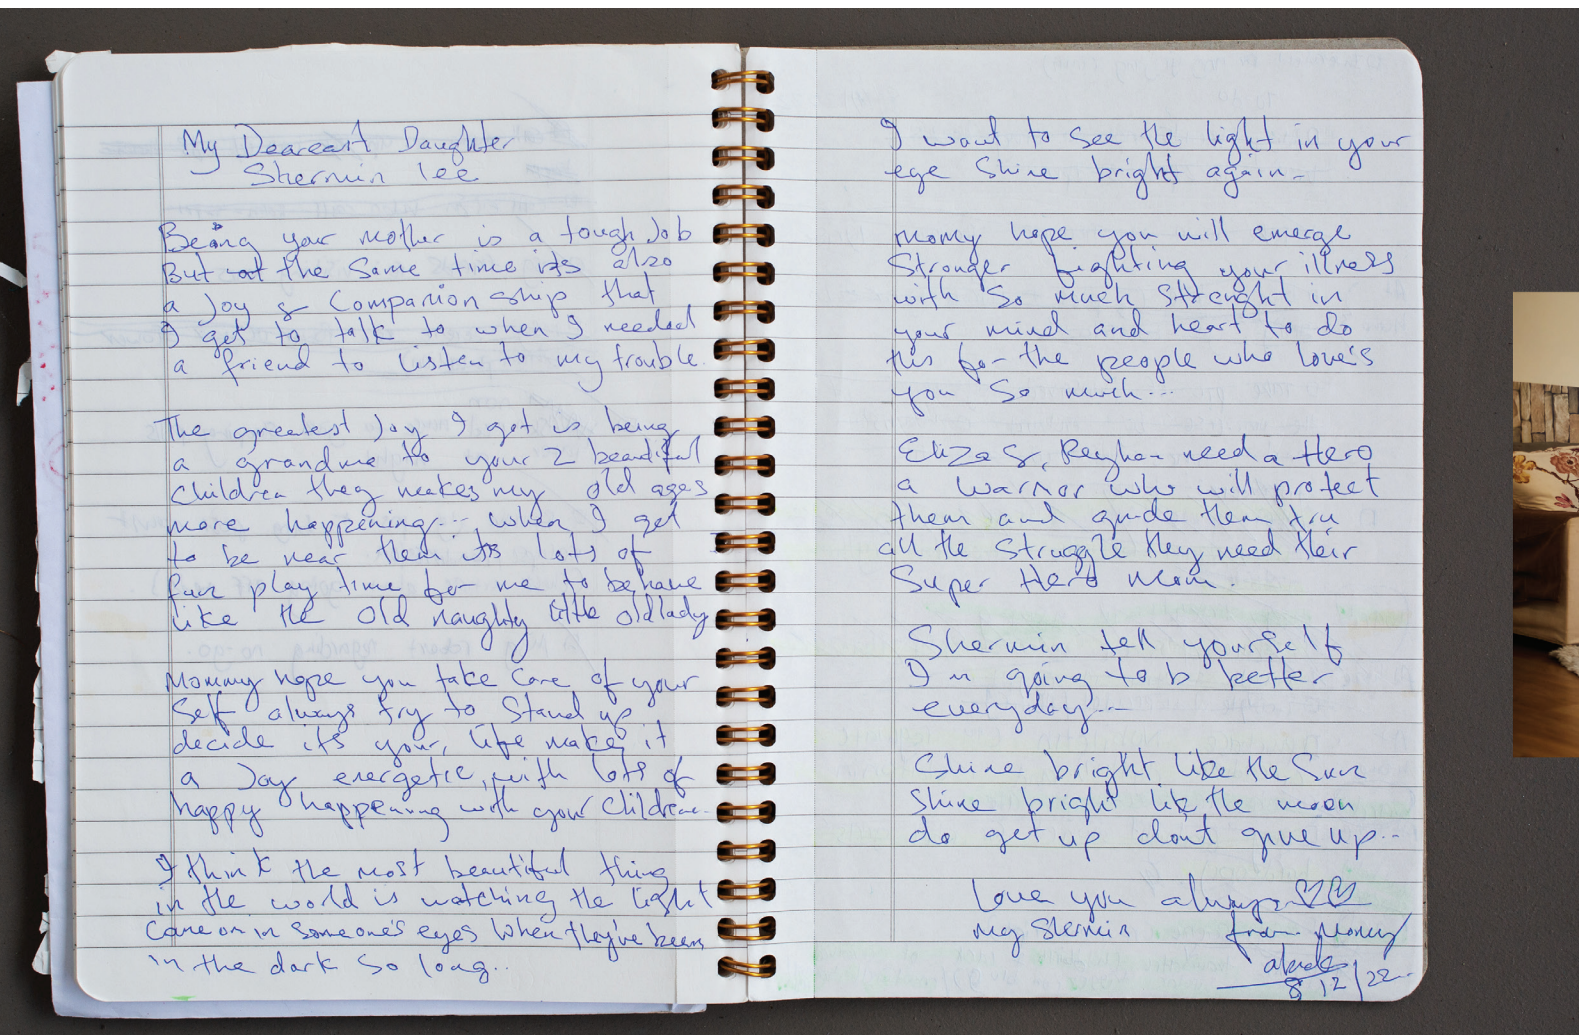 My Deareart Daughter
Shermin lee
Being your mother is a tough Job
But at the Same time its also
a Joy & Companion ship that
I get to talk to when I needed
a friend to Listen to my trouble.
The greatest Joy I get is being
a grandma to your 2 beautiful
Children they makes my old ages
more happening... when I get
to be near them its lots of
fun play time for me to behave
like the old naughty little old lady
Mommy hope you take Care of your
Self always try to Stand up
decide its your, life make it
a Joy energetic, with lots of
happy happening with your Children..
I think the most beautiful thing
in the world is watching the light
Come on in Someone's eyes When they've been
in the dark So long..
I want to See the light in your
eye Shine bright again-
Momy hope you will emerge
Stronger fighting your illness
with So much Strenght in
your mind and heart to do
this for the people who love's
you So much...
Eliza &, Reyhan need a Hero
a Warrior who will protect
them and guide them tru
all the Struggle they need their
Super Hero Mom.
Shermin tell yourself
I'm going to b better
everyday...
Shine bright like the Sun
Shine bright lik the moon
do get up dont give up...
Love you always ♡♡
my Shermin from Momy
8/12/22.